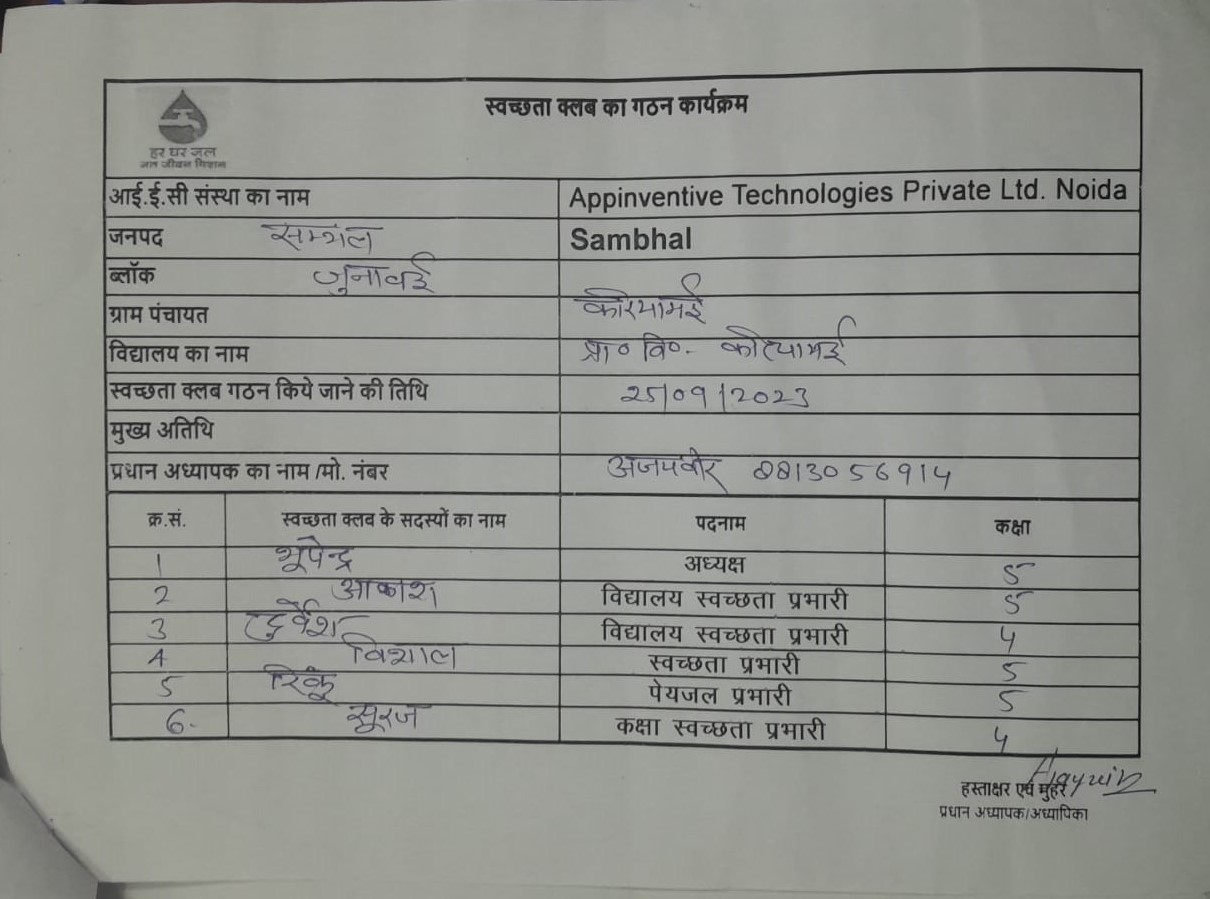 स्वच्छता क्लब का गठन कार्यक्रम
हर घर जल
जल जीवन मिशन
आई.ई.सी संस्था का नाम Appinventive Technologies Private Ltd. Noida
जनपद सम्भल Sambhal
ब्लॉक जुनावई
ग्राम पंचायत
विद्यालय का नाम प्रा० वि०-
स्वच्छता क्लब गठन किये जाने की तिथि 25/09/2023
मुख्य अतिथि
प्रधान अध्यापक का नाम /मो. नंबर अजयवीर 8813056914
क्र.सं. स्वच्छता क्लब के सदस्यों का नाम पदनाम कक्षा
1 भूपेन्द्र अध्यक्ष 5
2 आकाश विद्यालय स्वच्छता प्रभारी 5
3 विद्यालय स्वच्छता प्रभारी 4
4 विशाल स्वच्छता प्रभारी 5
5 रिंकू पेयजल प्रभारी 5
6. सूरज कक्षा स्वच्छता प्रभारी 4
हस्ताक्षर एवं मुहर
प्रधान अध्यापक/अध्यापिका